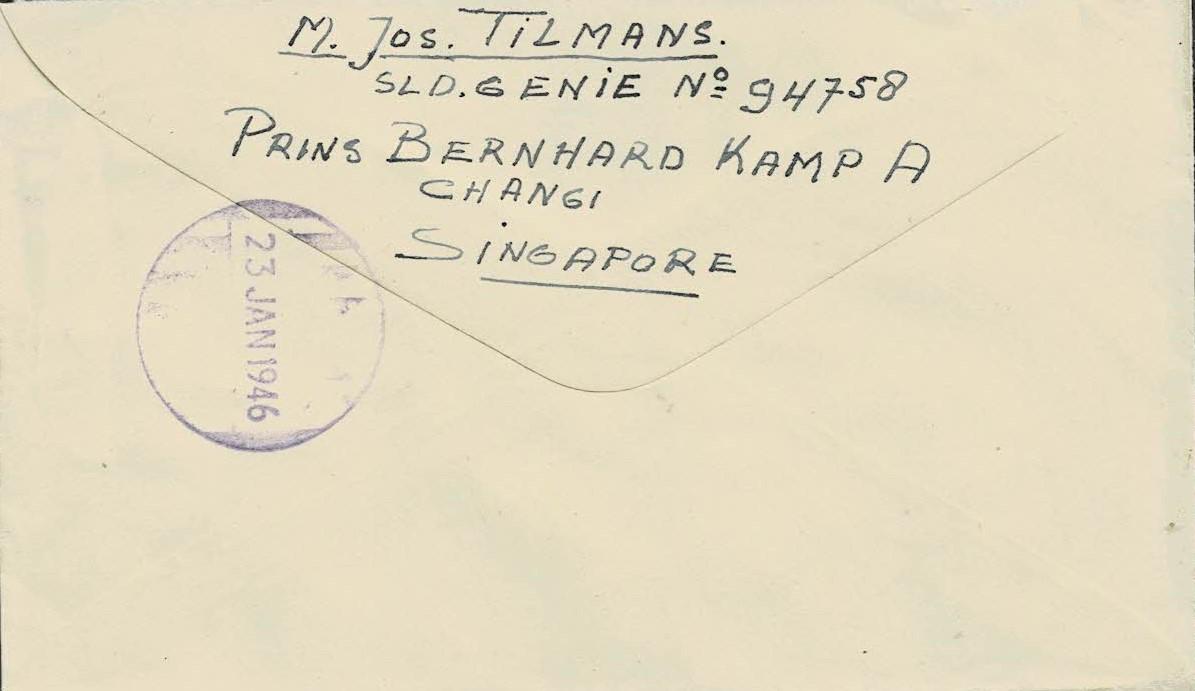 M. Jos. TiLMANS.
SLD. GENiE Nº 94758
PRINS BERNHARD KAMP A
CHANGI
SiNGAPORE
23 JAN 1946